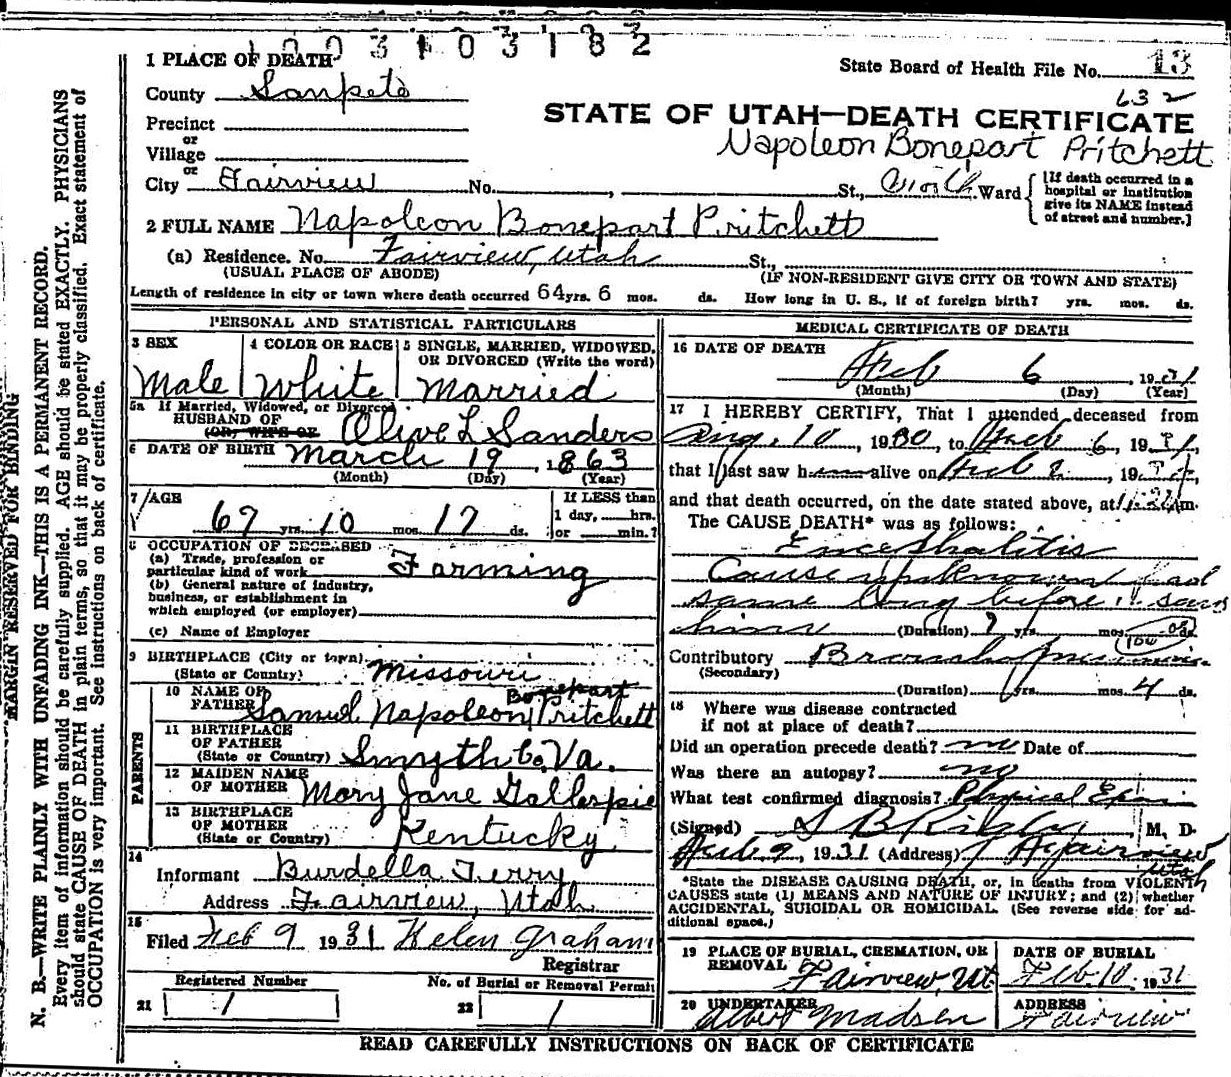 1003103182
1 PLACE OF DEATH
State Board of Health File No. 13
County Sanpete
632
STATE OF UTAH—DEATH CERTIFICATE
Precinct
or
Village
Napoleon Bonepart Pritchett
or
City Fairview No. , St., North Ward
[If death occurred in a hospital or institution give its NAME instead of street and number.]
2 FULL NAME Napoleon Bonepart Pritchett
(a) Residence. No. Fairview, Utah St.,
(USUAL PLACE OF ABODE) (IF NON-RESIDENT GIVE CITY OR TOWN AND STATE)
Length of residence in city or town where death occurred 64 yrs. 6 mos. ds. How long in U. S., if of foreign birth? yrs. mos. ds.
PERSONAL AND STATISTICAL PARTICULARS
3 SEX 4 COLOR OR RACE 5 SINGLE, MARRIED, WIDOWED, OR DIVORCED (Write the word)
Male White Married
5a If Married, Widowed, or Divorced
HUSBAND OF
(OR) WIFE OF Olive L Sanders
6 DATE OF BIRTH March 19, 1863
(Month) (Day) (Year)
7 AGE
67 yrs. 10 mos. 17 ds.
If LESS than
1 day, hrs.
or min.?
8 OCCUPATION OF DECEASED
(a) Trade, profession or
particular kind of work Farming
(b) General nature of industry,
business, or establishment in
which employed (or employer)
(c) Name of Employer
9 BIRTHPLACE (City or town)
(State or Country) Missouri
PARENTS
10 NAME OF
FATHER Samuel Napoleon Bonepart Pritchett
11 BIRTHPLACE
OF FATHER
(State or Country) Smyth Co. Va.
12 MAIDEN NAME
OF MOTHER Mary Jane Gallespie
13 BIRTHPLACE
OF MOTHER
(State or Country) Kentucky
14
Informant Burdella Terry
Address Fairview, Utah
15
Filed Feb 9 1931 Helen Graham
Registrar
Registered Number No. of Burial or Removal Permit
21 1 22 1
MEDICAL CERTIFICATE OF DEATH
16 DATE OF DEATH
Feb 6, 1931
(Month) (Day) (Year)
17 I HEREBY CERTIFY, That I attended deceased from
Aug. 10, 1930, to Feb 6, 1931,
that I last saw h alive on Feb , 19
and that death occurred, on the date stated above, at m.
The CAUSE DEATH* was as follows:
Encephalitis
Cause unknown had
same long before I saw
him (Duration) ? yrs. mos. ds.
Contributory Broncho pneumonia
(Secondary)
(Duration) yrs. mos. 4 ds.
18 Where was disease contracted
if not at place of death?
Did an operation precede death? no Date of
Was there an autopsy? no
What test confirmed diagnosis? Physical Exam
(Signed) S B Rigby, M. D.
Feb 9, 1931 (Address) Fairview
Utah
*State the DISEASE CAUSING DEATH, or, in deaths from VIOLENT
CAUSES state (1) MEANS AND NATURE OF INJURY; and (2) whether
ACCIDENTAL, SUICIDAL OR HOMICIDAL. (See reverse side for ad-
ditional space.)
19 PLACE OF BURIAL, CREMATION, OR
REMOVAL Fairview, Ut.
DATE OF BURIAL
Feb. 10, 1931
20 UNDERTAKER
Albert Madsen
ADDRESS
Fairview
READ CAREFULLY INSTRUCTIONS ON BACK OF CERTIFICATE
MARGIN RESERVED FOR BINDING
N. B.—WRITE PLAINLY WITH UNFADING INK—THIS IS A PERMANENT RECORD.
Every item of information should be carefully supplied. AGE should be stated EXACTLY. PHYSICIANS
should state CAUSE OF DEATH in plain terms, so that it may be properly classified. Exact statement of
OCCUPATION is very important. See instructions on back of certificate.